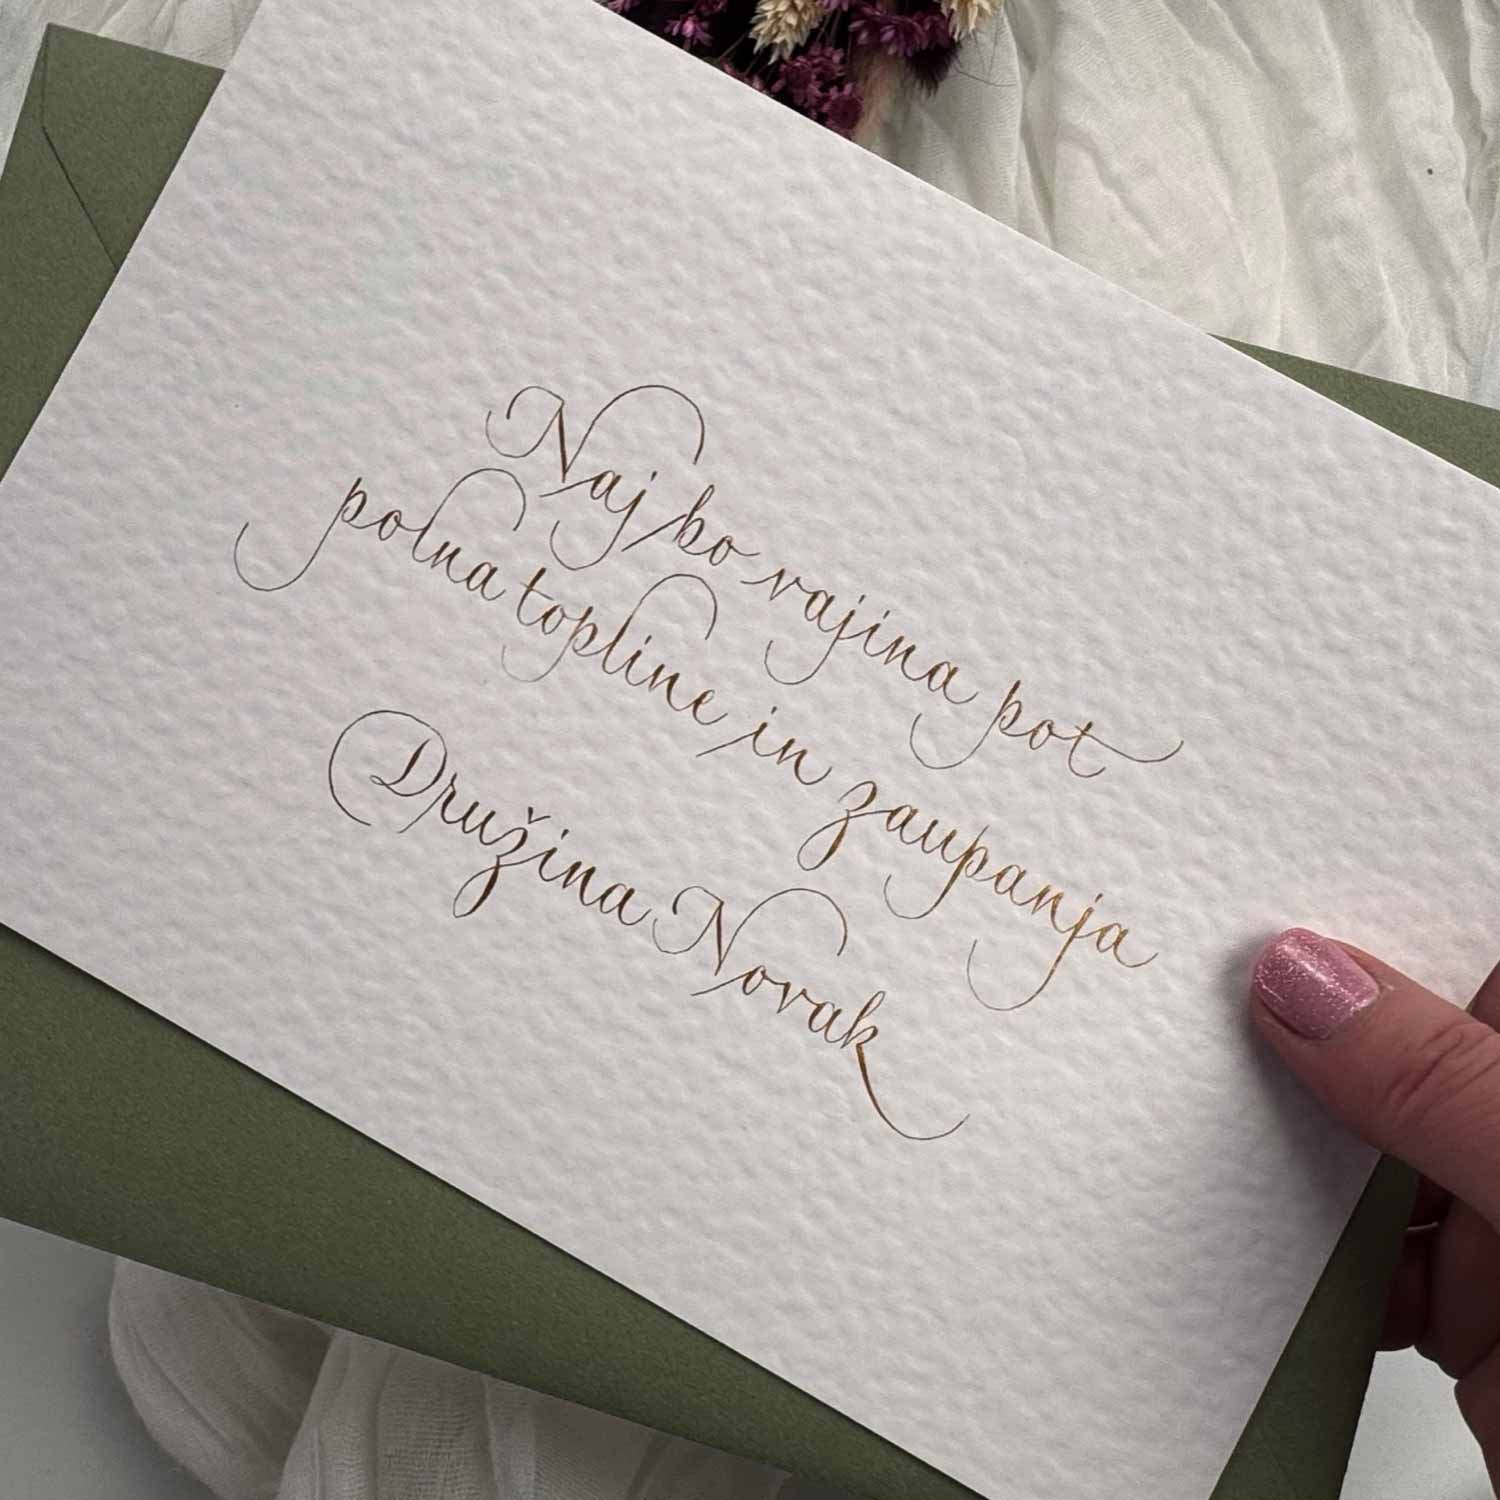 Naj bo vajina pot
polna topline in zaupanja
Družina Novak